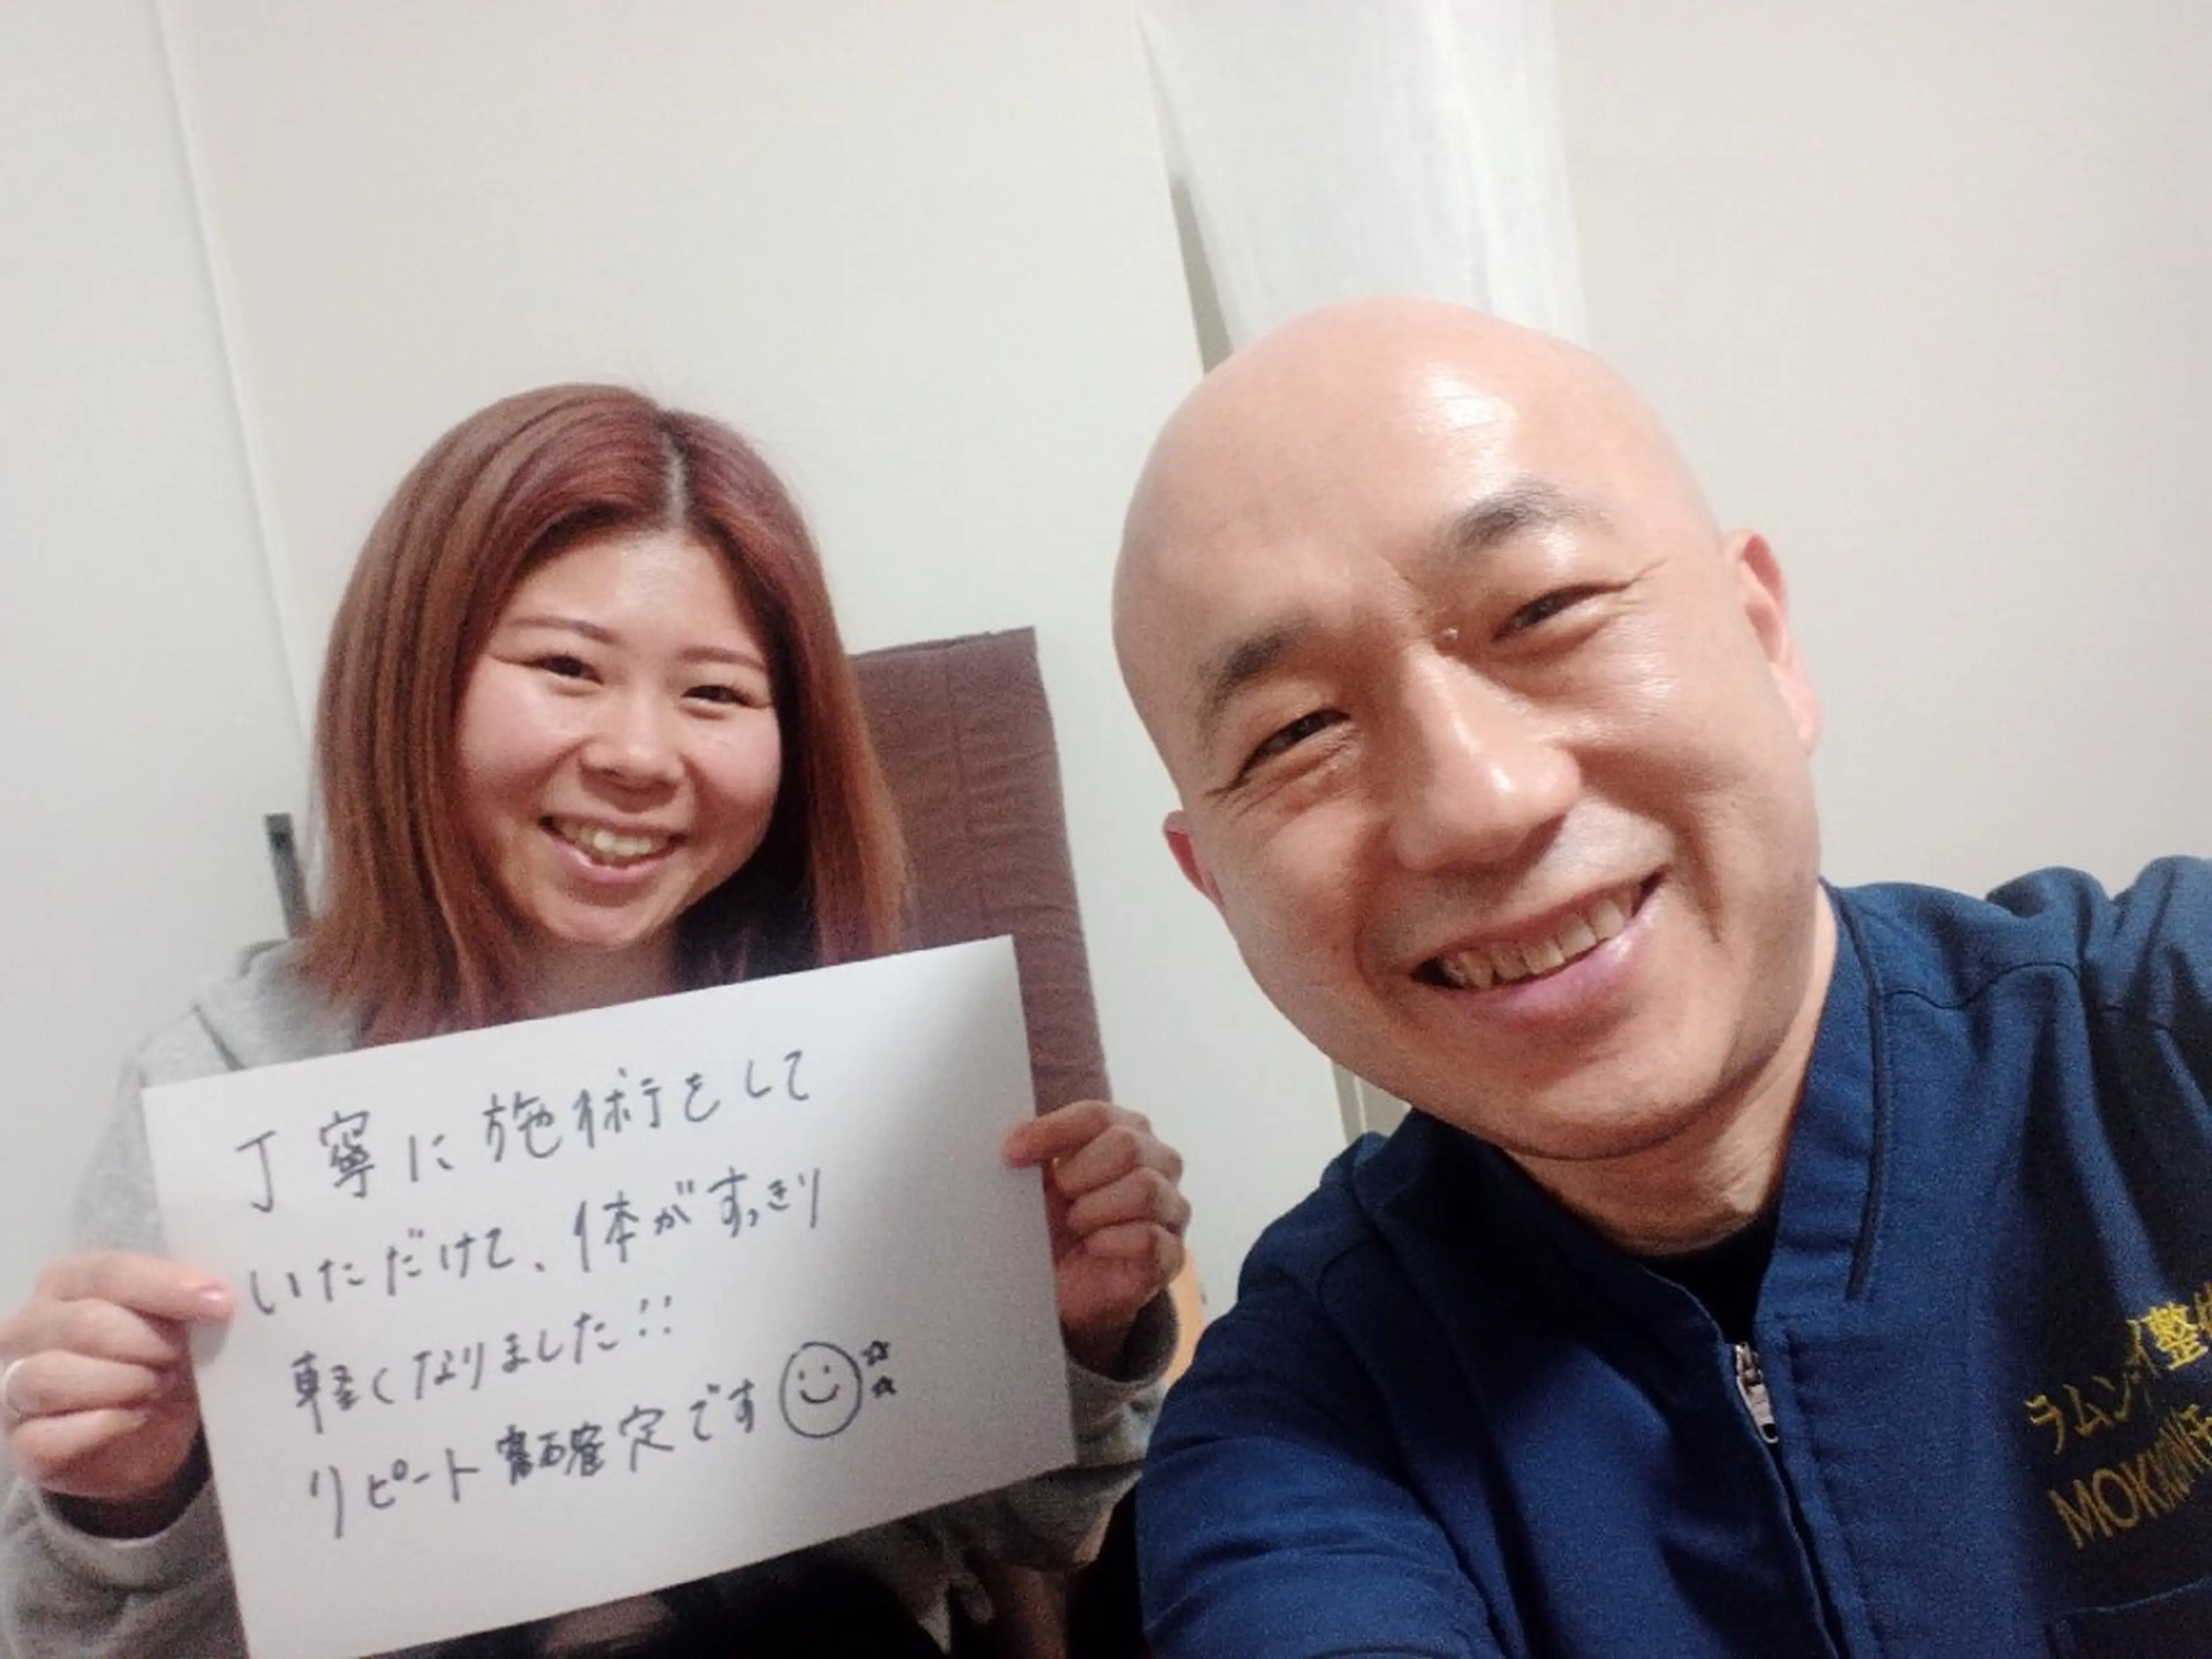 丁寧に施術をして
いただけて、体がすっきり
軽くなりました!!
リピート確定です
ラムンイ整
MOKKINE